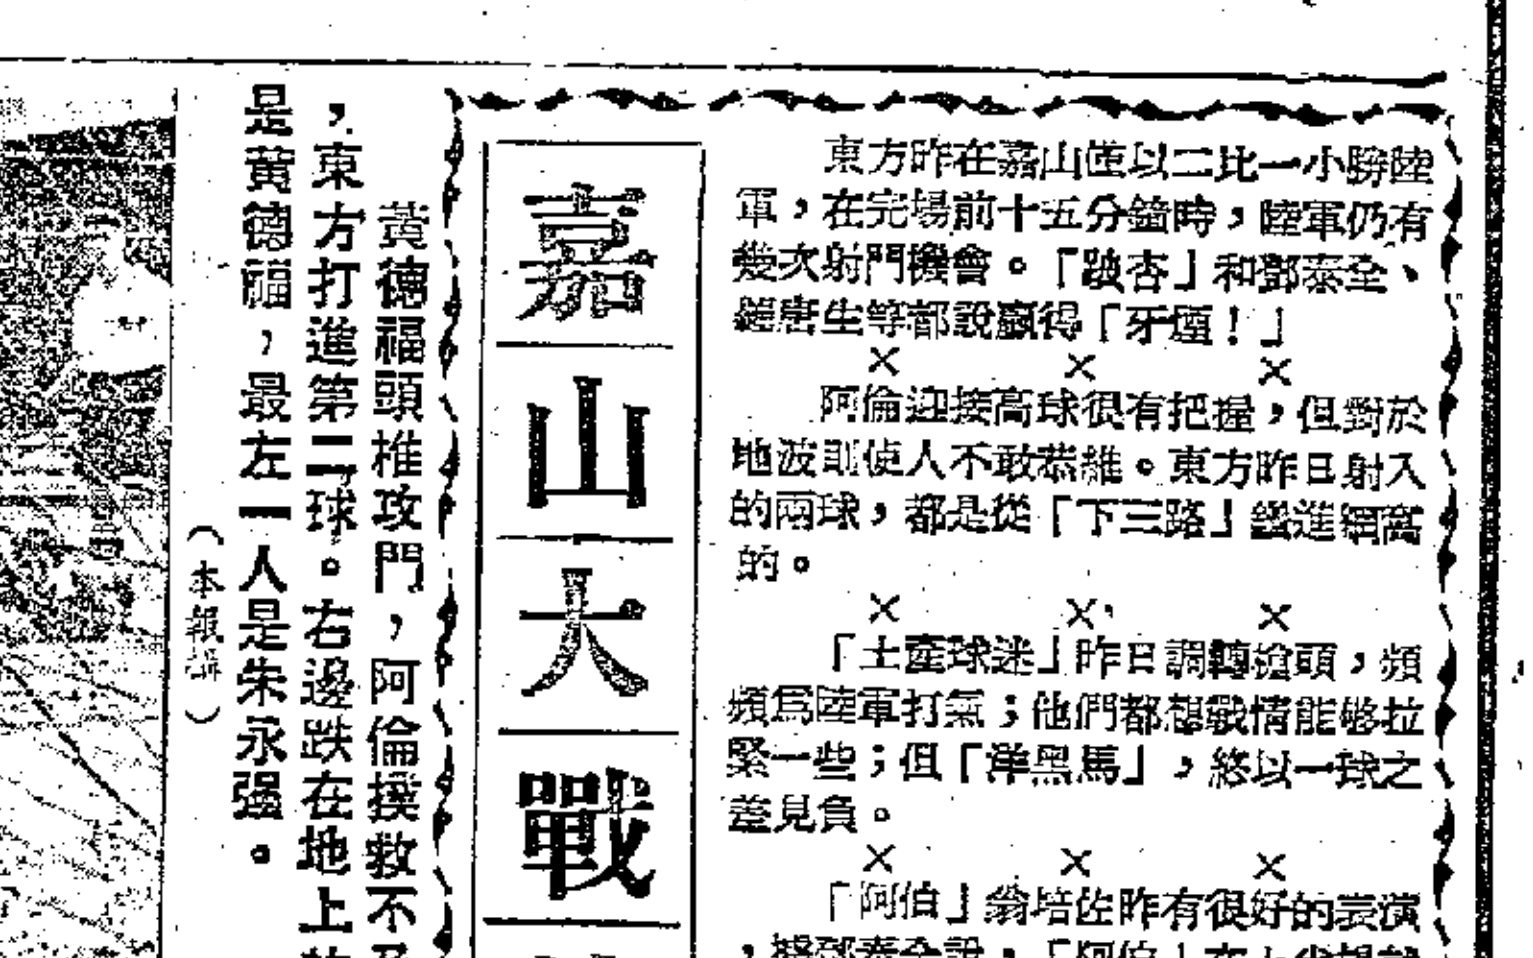 東方昨在嘉山僅以二比一小勝陸
軍，在完場前十五分鐘時，陸軍仍有
幾次射門機會。「跛杏」和鄧泰全、
唐生等都說贏得「牙瘟！」
× × ×
阿倫迎接高球很有把握，但對於
地波則使人不敢恭維。東方昨日射入
的兩球，都是從「下三路」鑽進網窩
的。
× × ×
「土產球迷」昨日調轉槍頭，頻
頻爲陸軍打氣；他們都想戰情能够拉
緊一些；但「洋黑馬」，終以一球之
差見負。
× × ×
「阿伯」翁培佐昨有很好的表演
，鄧泰全說，「阿伯」在
嘉山大戰
黃德福頭椎攻門，阿倫撲救不及
，東方打進第二球。右邊跌在地上的
是黃德福，最左一人是朱永强。
（本報攝）